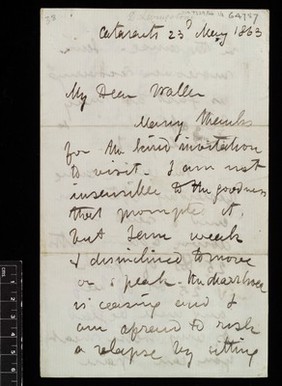 38
64757
Cataracts 23d May 1863
My Dear Waller
Many thanks
for the kind invitation
to visit. I am not
insensible to the goodness
that prompts it,
but I am weak
& disinclined to move
or speak. The diarrhoea
is ceasing and I
am afraid to risk
a relapse by sitting